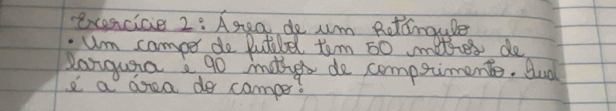 Exercício 2: Área de um Retângulo
• Um campo de futebol tem 50 metros de
largura e 90 metros de comprimento. Qual
é a área do campo?